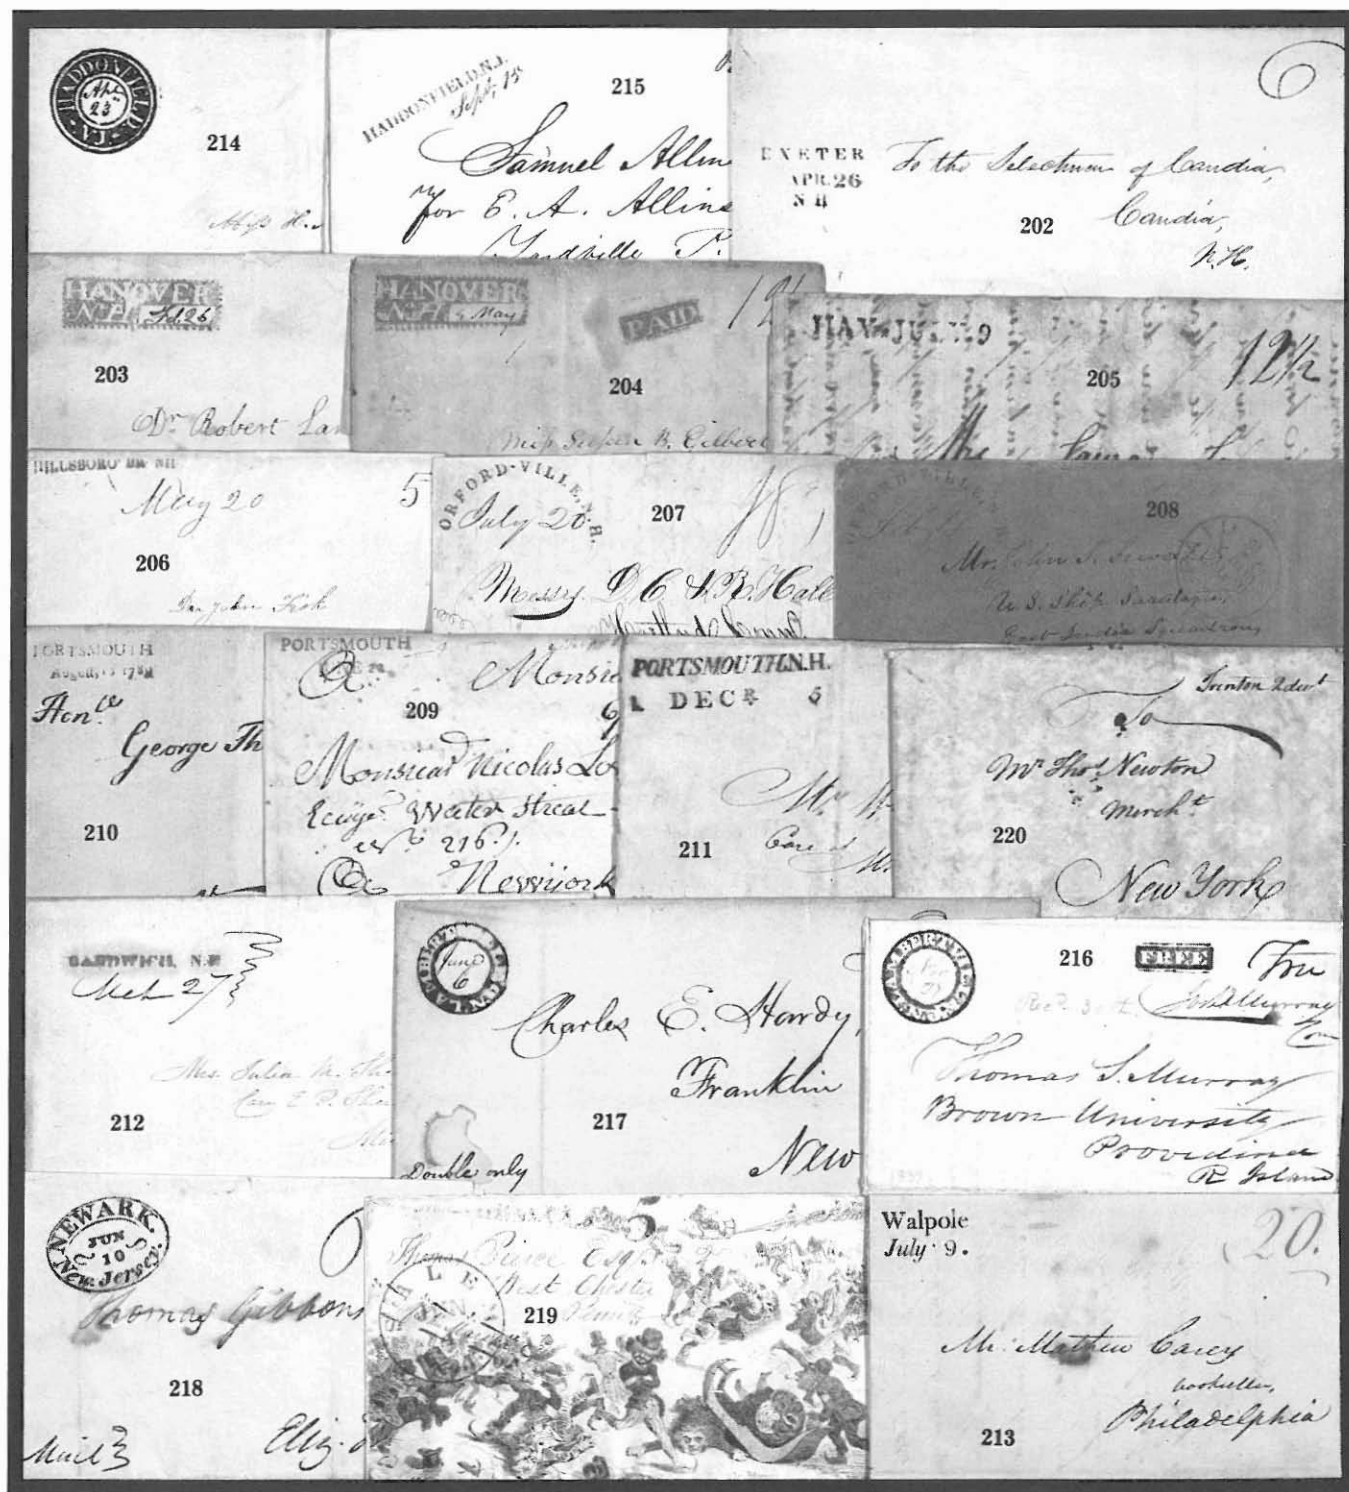 HADDONFIELD. NJ.
Apl. 23
214
HADDONFIELD. N.J.
Sept. 18
215
Samuel Allin
for E. A. Allins
Yardville P.
6
EXETER
APR. 26
N H
To the Selectmen of Candia,
202
Candia,
N.H.
HANOVER
N.H. Feb. 26
203
Dr Robert Lan
HANOVER
N.H. 4 May
PAID
12½
204
Miss Susan B. Gilbert
HAV-JULY 9
205
12½
Mrs
HILLSBORO' BR. NH
May 20
5
206
Dr. John Fisk
ORFORD-VILLE, N.H.
July 20
207
18
Messrs. D. C. & R. Hall
208
Mr. John S.
U. S. Ship Saratoga
East India Squadron
PORTSMOUTH
Honble
George Th
210
PORTSMOUTH
Monsie
209
Monsieur Nicolas Lo
Water Street
216
Newyork
PORTSMOUTH. N.H.
DECR 5
Mr. W
211
Care of
M
Trenton 2dwt
To
Mr Thos. Newton
Mercht
220
New York
SANDWICH, N.H
Mch 27
Mrs. Julia M. Sh
Care E. P. Sha
212
LAMBERTVILLE
June 6
Charles E. Hardy,
Franklin
217
New
Double only
LAMBERTVILLE
216
FREE
Free
Thomas S. Murray
Brown University
Providence
R. Island
NEWARK.
JUN
10
New. Jersey.
Thomas Gibbons
218
Mail 3
Eliz.
5
Thomas Pierce Esq.
West Chester
SALEM
JUN
219
Walpole
July 9.
20.
Mr. Mathew Carey
bookseller,
Philadelphia
213